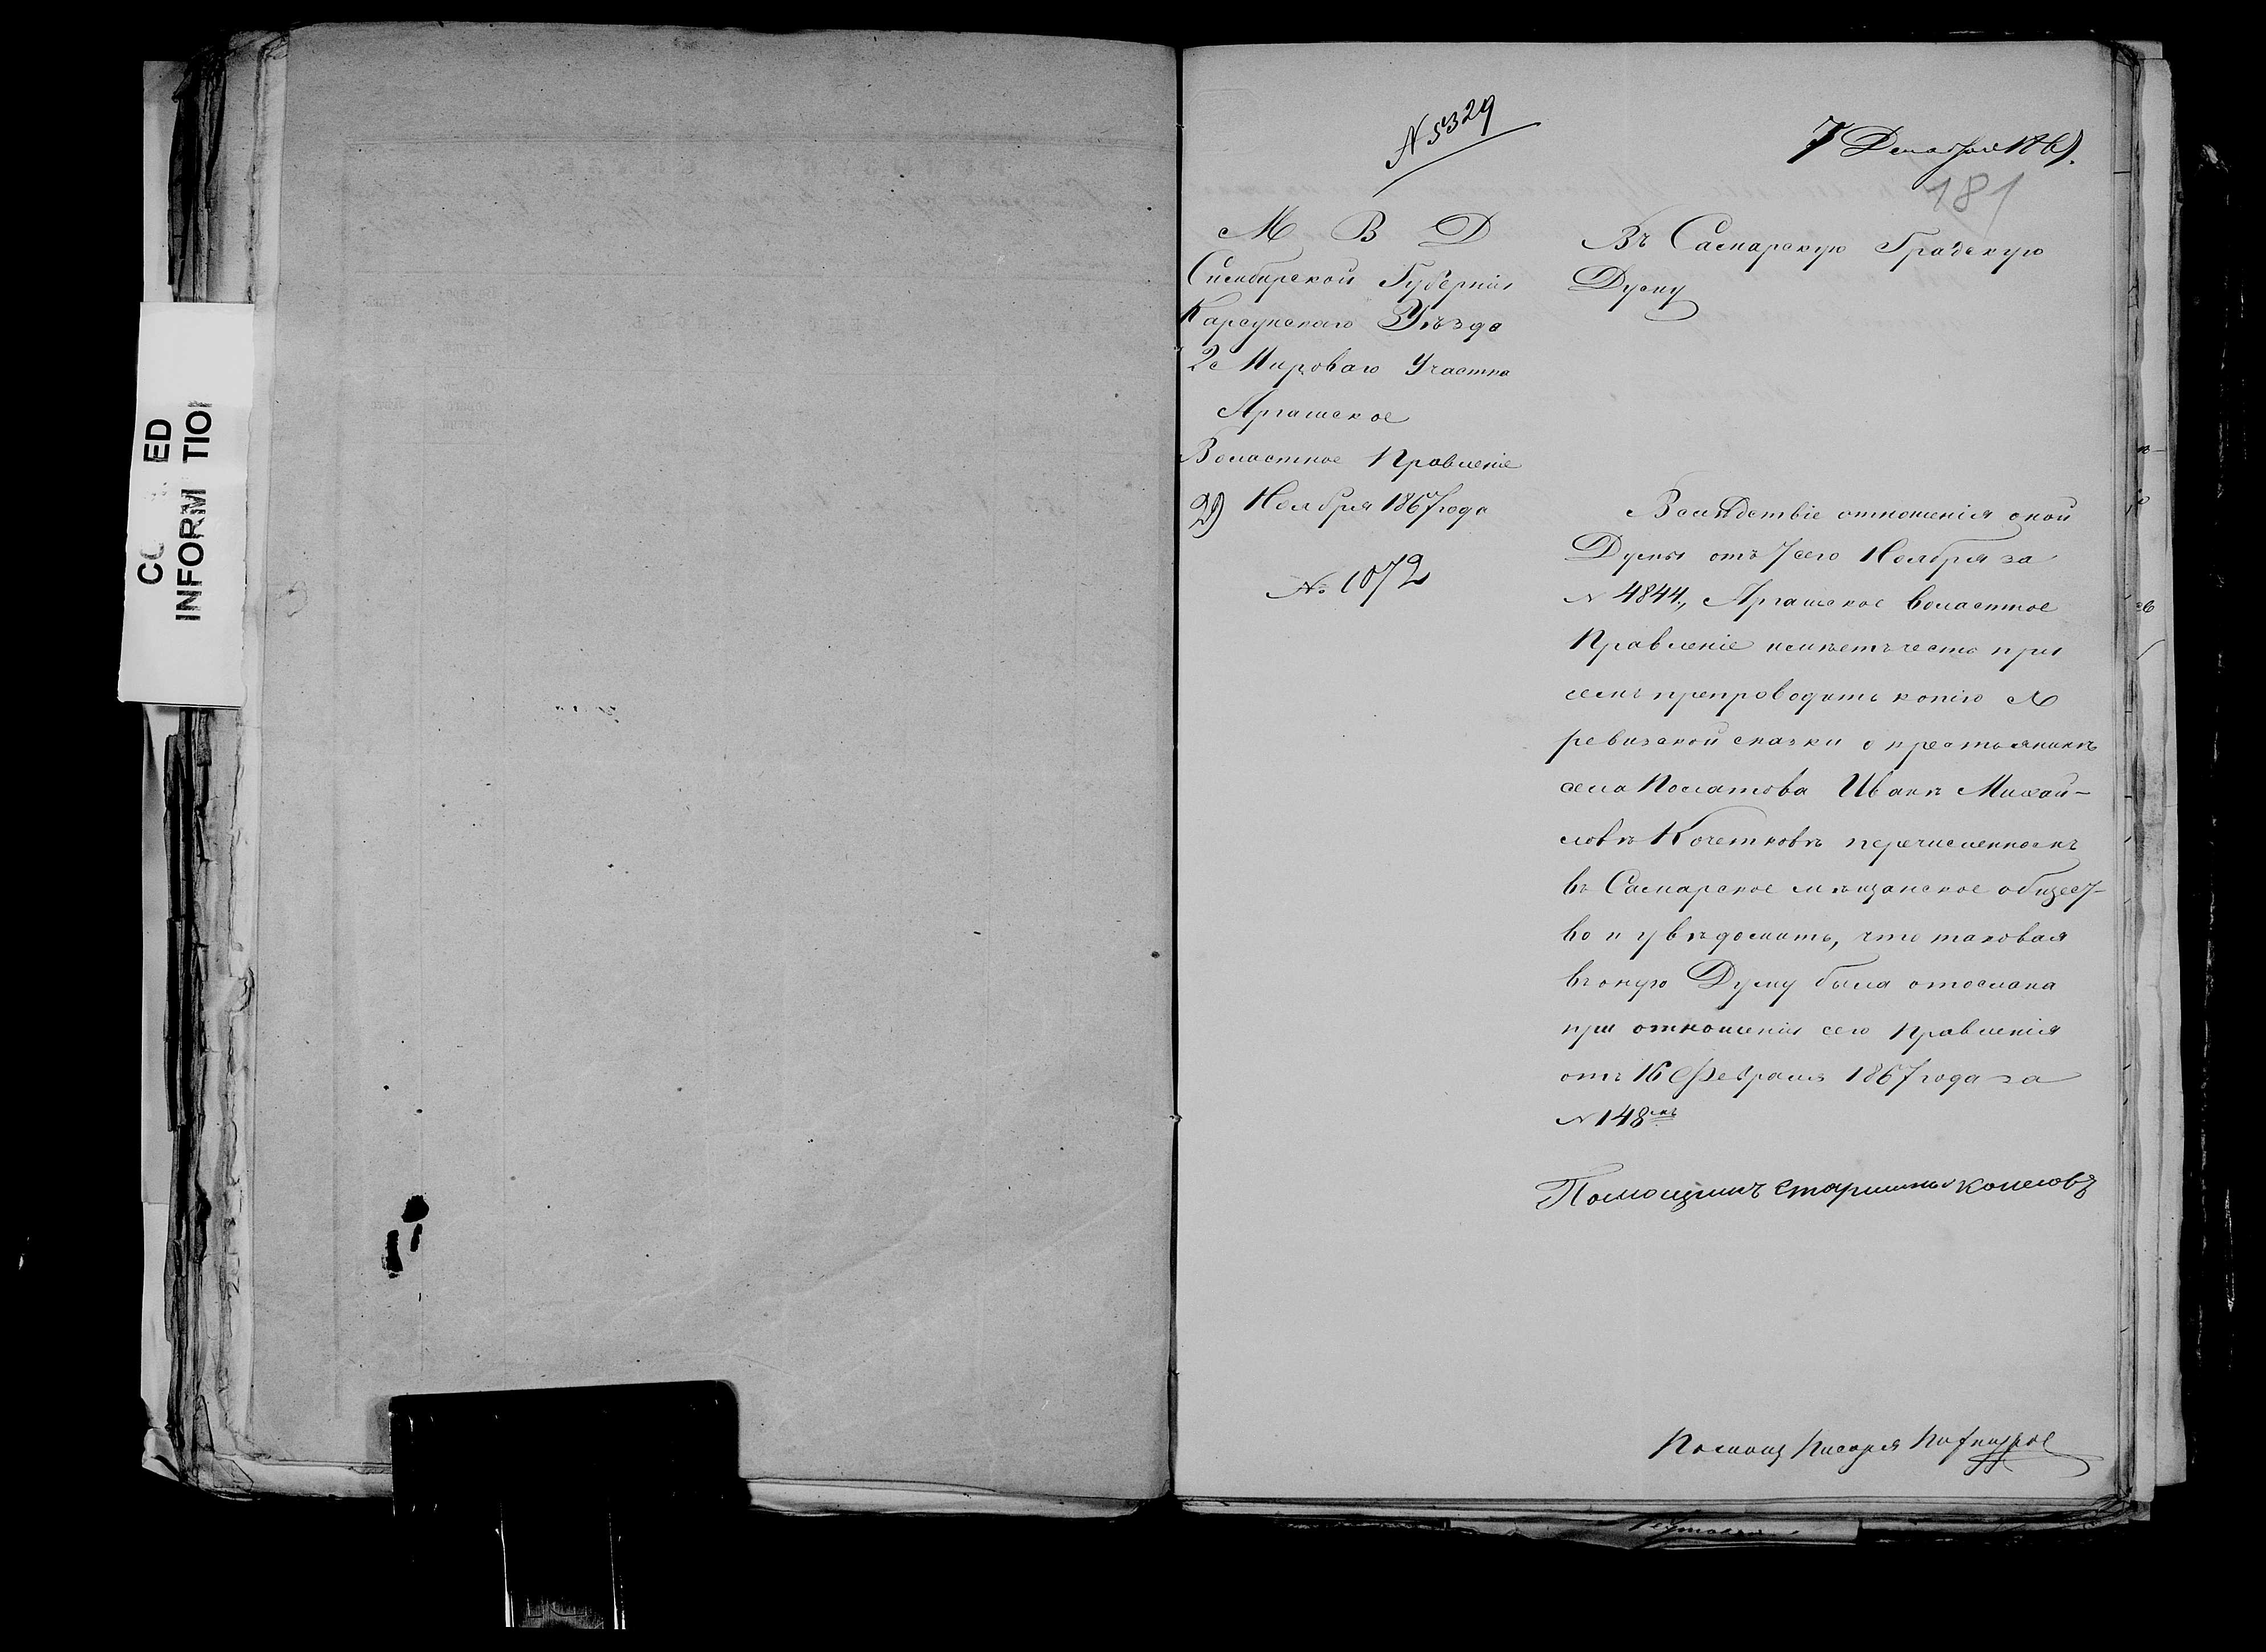 № 5329
7 Декабря 1867.
181
М В Д
Симбирской Губерніи
Карсунскаго Уѣзда
2го Мироваго Участка
Аргашское
Волостное Правленіе
29 Ноября 1867 года
№ 1072
Въ Самарскую Градскую
Думу
Вслѣдствіе отношенія оной
Думы отъ 7 сего Ноября за
№ 4844, Аргашское волостное
Правленіе имѣетъ честь при
семъ препроводить копію съ
ревизской сказки о крестьянинѣ
села Иван Михай-
ловѣ Кочетковѣ перечисленномъ
въ Самарское мѣщанское общест-
во и увѣдомить, что таковая
въ оную Думу была отослана
при отношеніи сего Правленія
отъ 16 Февраля 1867 года за
№ 148мъ
Помощникъ Старшины
Помощ Писаря
CO ED
INFORM TION